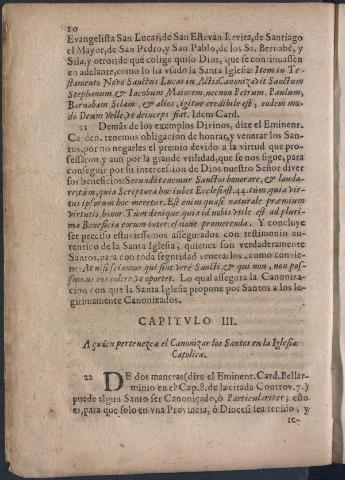 10
Evangelista San Lucas; de San Estevan Levita, de Santiago
el Mayor, de San Pedro, y San Pablo, de los Ss. Bernabè, y
Sila, y otros; de què colige quiso Dios, que se continuassen
en adelante, como lo ha vsado la Santa Iglesia: Item in Te-
stamento Novo Sanctus Lucas in Actis Canonizavit Sanctum
Stephanum, & Iacobum Maiorem, necnon Petrum, Paulum,
Barnabam Silam, & alios, igitur credibile est, eodem mo-
do Deum velle, vt deinceps fiat. Idem Card.
21 Demàs de los exemplos Divinos, dize el Eminent.
Carden. tenemos obligacion de honrar, y venerar los San-
tos, por no negarles el premio devido a la virtud que pro-
fessaron, y aun por la grande vtilidad, que se nos sigue, para
conseguir por su intercession de Dios nuestro Señor diver-
sos beneficios: Secundo tenemur Sanctos honorare, & lauda-
re; tùm, quia Scriptura hoc iubet Ecclesiast. 44. tùm, quia vir-
tus ipsorum hoc meretur. Est enim quasi naturale præmium
virtutis honor. Tùm denique quia id nobis vtile est ad pluri-
ma Beneficia eorum intercessione promerenda. Y concluye
ser preciso estuviessemos assegurados con testimonio au-
tentico de la Santa Iglesia, quienes son verdaderamente
Santos, para con toda seguridad venerarlos, como convie-
ne: At nisi sciamus qui sint verè Sancti, & qui non, non pos-
sumus eos colere, vt oportet. Lo qual assegura la Canoniza-
cion con que la Santa Iglesia propone por Santos a los le-
gitimamente Canonizados.
CAPITVLO III.
A quien pertenezca el Canonizar los Santos en la Iglesia
Catolica.
22 DE dos maneras (dize el Eminent. Card. Bellar-
minio en el Cap. 8. de la citada Controv. 7.)
puede algun Santo ser Canoniçado, ò Particulariter; esto
es, para que solo en vna Provincia, ò Diocesi sea tenido, y
re-